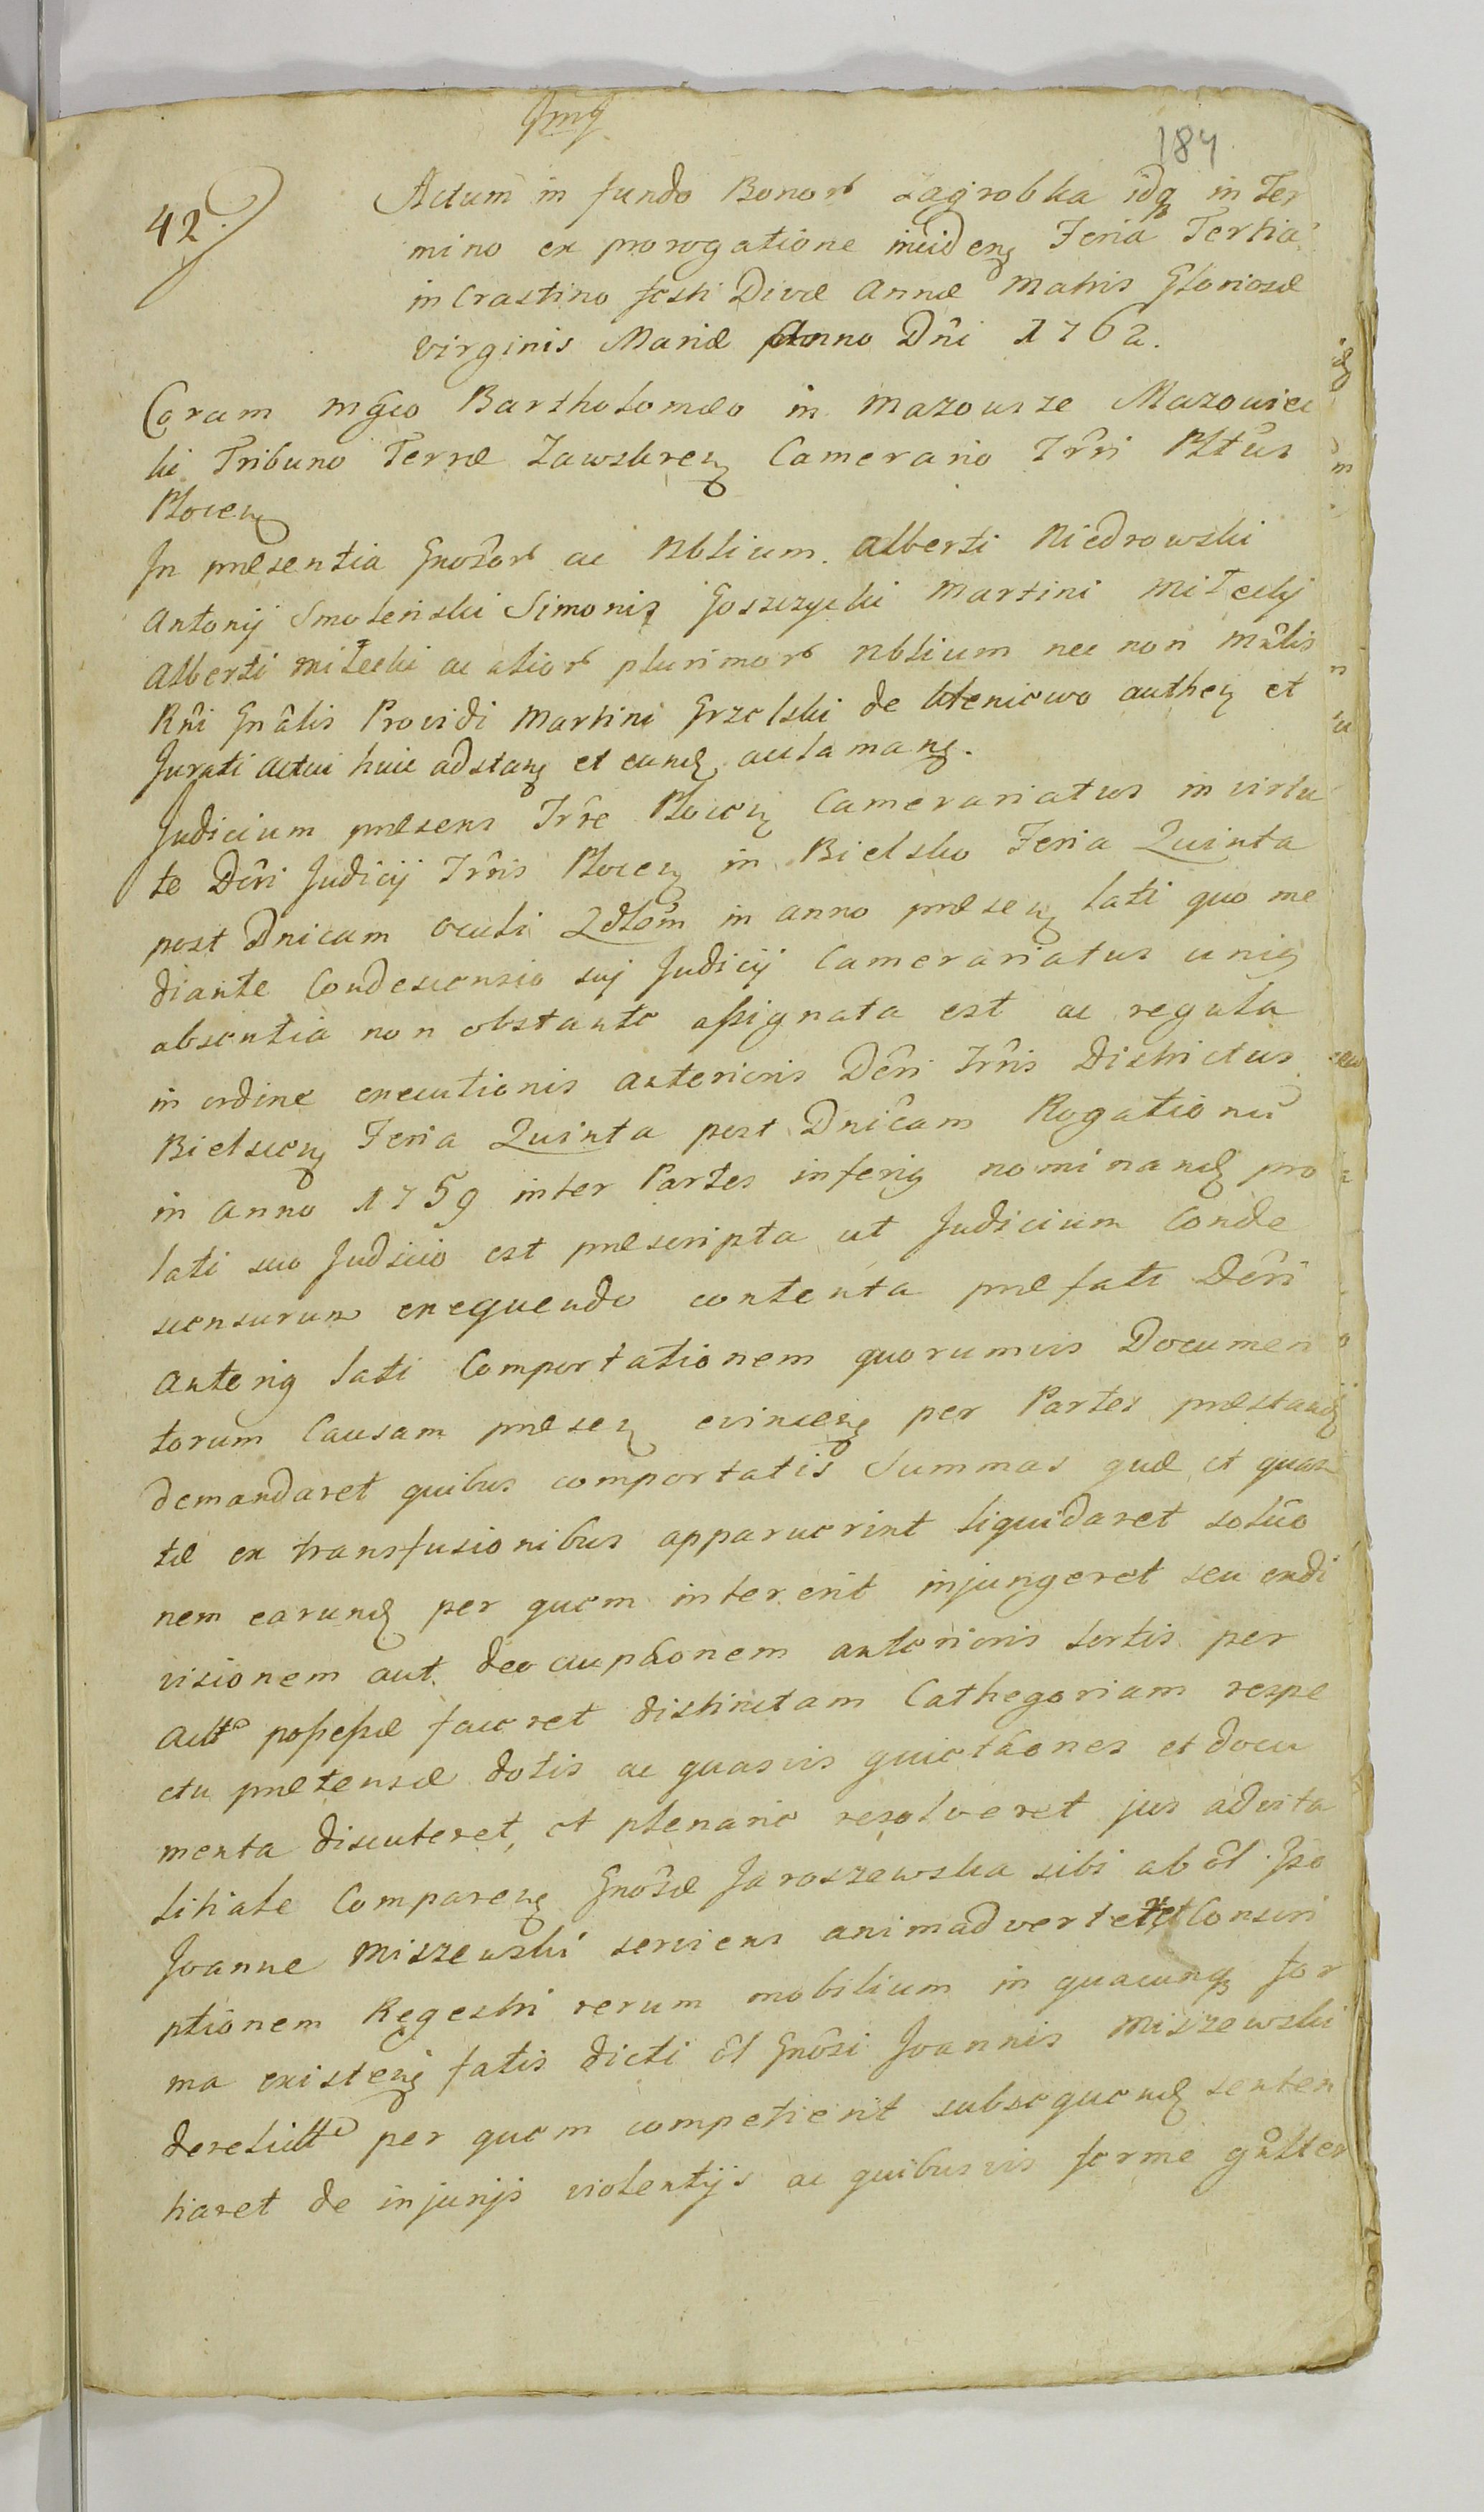 184
42
Actum in fundo Bonor Zagrobka idq in Ter
mino ex prorogatione inciden Feria Tertia
in Crastino festi Divæ Annæ Matris Gloriosæ
Virginis Mariæ Anno Dni 1762.
Coram Mgco Bartholomæo in Mazowsze Mazowiec
ki Tribuno Terræ Zawskren Camerario Trri Pltus
Plocen
In præsentia Gnosor ac Nblium Alberti Niedrowski
Antonij Smolenski Simonis Goszczycki Martini Miłecky
Alberti Miłecki ac alior plurimor Nblium nec non Mnlis
Rni Gnalis Providi Martini Grzelski de authen et
Jurati actui huic adstan et eund acclaman.
Judicium præsens Trre Plocen Camerariatus in virtu
te Dcri Judicij Trris Plocen in Bielsko Feria Quinta
post Dnicam Oculi Qdlem in anno præsen lati quo me
diante Condescensio sui Judicij Camerariatus unig
absentia non obstante assignata est ac regula
in ordine executionis anterioris Dcri Trris Districtus
Bielscen Feria Quinta post Dnicam Rogationu
in anno 1759 inter Partes inferig nominand pro
lati suo Judicio est præscripta ut Judicium Conde
scensurum exequendo contenta præfati Dcri
anterig lati Comportationem quorumvis Documen
torum Causam præsen evincen per Partes præstand
demandaret quibus comportatis Summas quæ et quan
tæ ex transfusionibus apparuerint liquidaret soluo
nem earund per quem intererit injungeret seu exdi
visionem aut deocupaonem anterioris sortis per
actt possessæ faceret distinctam Cathegoriam respe
ctu prætensæ dotis ac quasvis quietaones et docu
menta discuteret, et plenarie resolveret jus advita
litiale Comparen Gnosæ Jaroszewska sibi ab ol Gso
Joanne Miszewski serviens animadverteret Conscri
ptionem Regestri rerum mobilium in quacunq for
ma existen fatis dicti ol Gnosi Joannis Miszewski
derelictt per quem competierit subsequend senten
tiaret de injurijs violentijs ac quibusvis forme gnlter